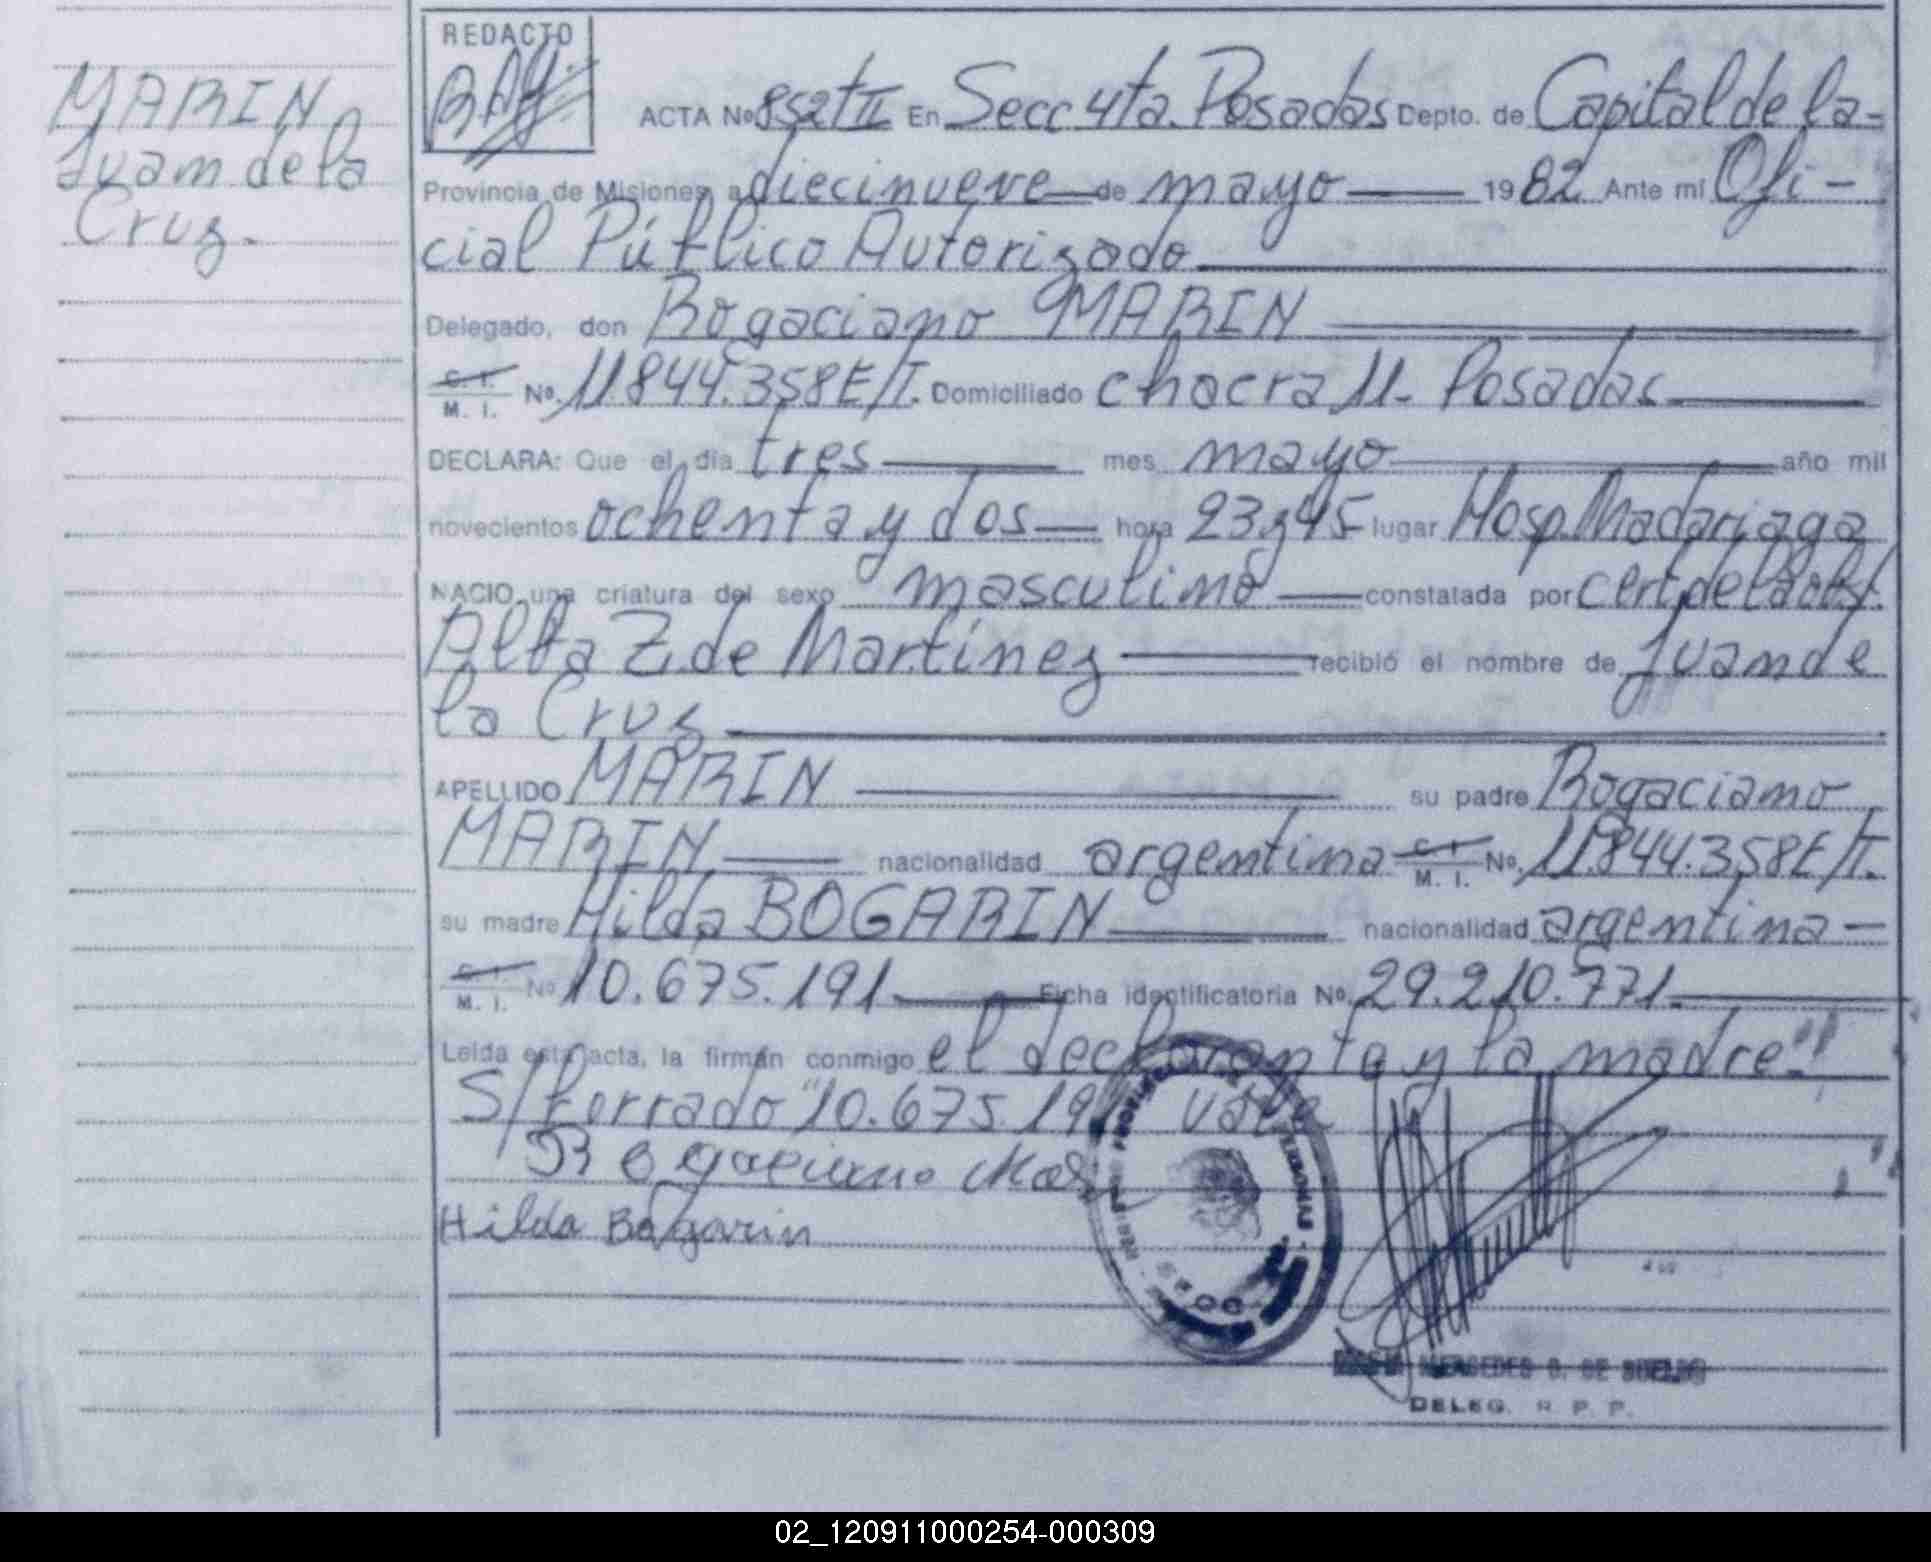 MARIN
Juan de la
Cruz.
REDACTO
ACTA Nº 852 tº II En Secc 4ta. Posadas Depto. de Capital de la-
Provincia de Misiones, a diecinueve de mayo 1982 Ante mí Ofi-
cial Público Autorizado
Delegado, don Rogaciano MARIN
C. I. M. I. Nº. 11.844.358 E/T. Domiciliado chacra 11- Posadas
DECLARA: Que el día tres mes mayo año mil
novecientos ochenta y dos hora 23,45 lugar Hosp. Madariaga
NACIO una criatura del sexo masculino constatada por cert. de la obst.
Alba Z. de Martinez recibió el nombre de Juan de
la Cruz
APELLIDO MARIN su padre Rogaciano
MARIN nacionalidad argentina C. I. M. I. Nº. 11.844.358 E/T.
su madre Hilda BOGARIN nacionalidad argentina-
C. I. M. I. Nº 10.675.191. Ficha identificatoria Nº. 29.210.771.
Leída esta acta, la firman conmigo el declarante y la madre."
S/borrado "10.675.191 Vale
Rogaciano Mari
Hilda Bogarin
MERCEDES
DELEG. R. P. P.
02_120911000254-000309